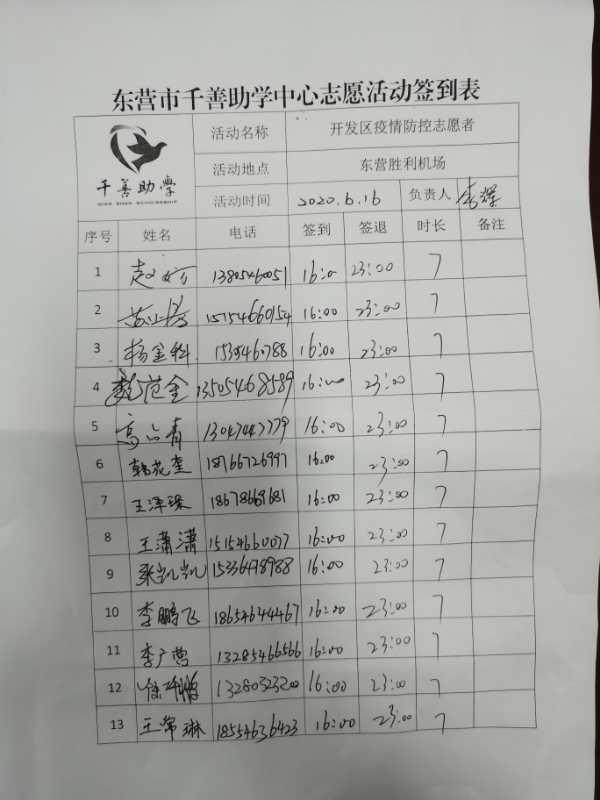 东营市千善助学中心志愿活动签到表
千善助学
活动名称 开发区疫情防控志愿者
活动地点 东营胜利机场
活动时间 2020.6.16 负责人
序号 姓名 电话 签到 签退 时长 备注
1 赵 13805460051 16:0 23:00 7
2 15154660154 16:00 23:00 7
3 杨金科 16:00 23:00 7
4 范金 13505468589 16:00 23:00 7
5 高 青 13047447779 16:00 23:00 7
6 韩花奎 18766726997 16:00 23:00 7
7 王泽琛 18678669681 16:00 23:00 7
8 王潇潇 15154660077 16:00 23:00 7
9 张凯凯 15336498988 16:00 23:00 7
10 李鹏飞 18654644467 16:00 23:00 7
11 李广营 13285466566 16:00 23:00 7
12 13280323200 16:00 23:00 7
13 王常琳 18554636423 16:00 23:00 7